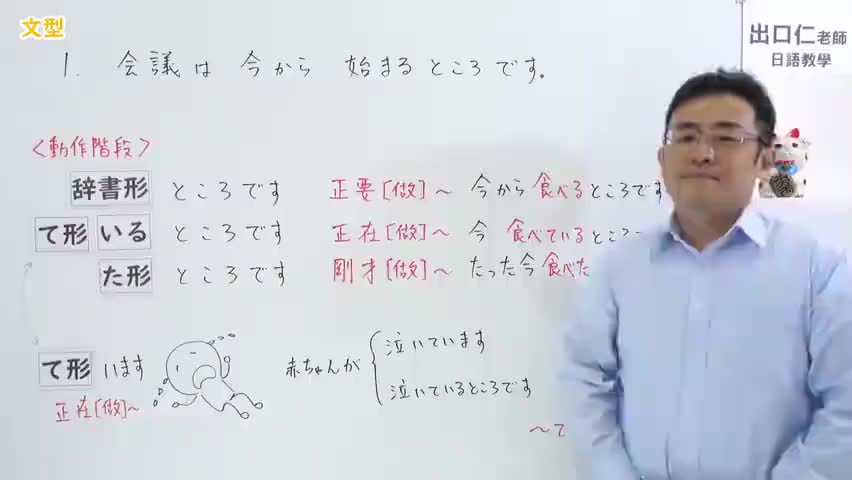 文型
出口仁老師
日語教學
1. 会議は 今から 始まるところです。
<動作階段>
辞書形 ところです 正要[做]~ 今から食べるところです
て形 いる ところです 正在[做]~ 今 食べているところ
た形 ところです 剛才[做]~ たった今 食べた
て形 います
正在[做]~
赤ちゃんが
泣いています
泣いているところです
~て